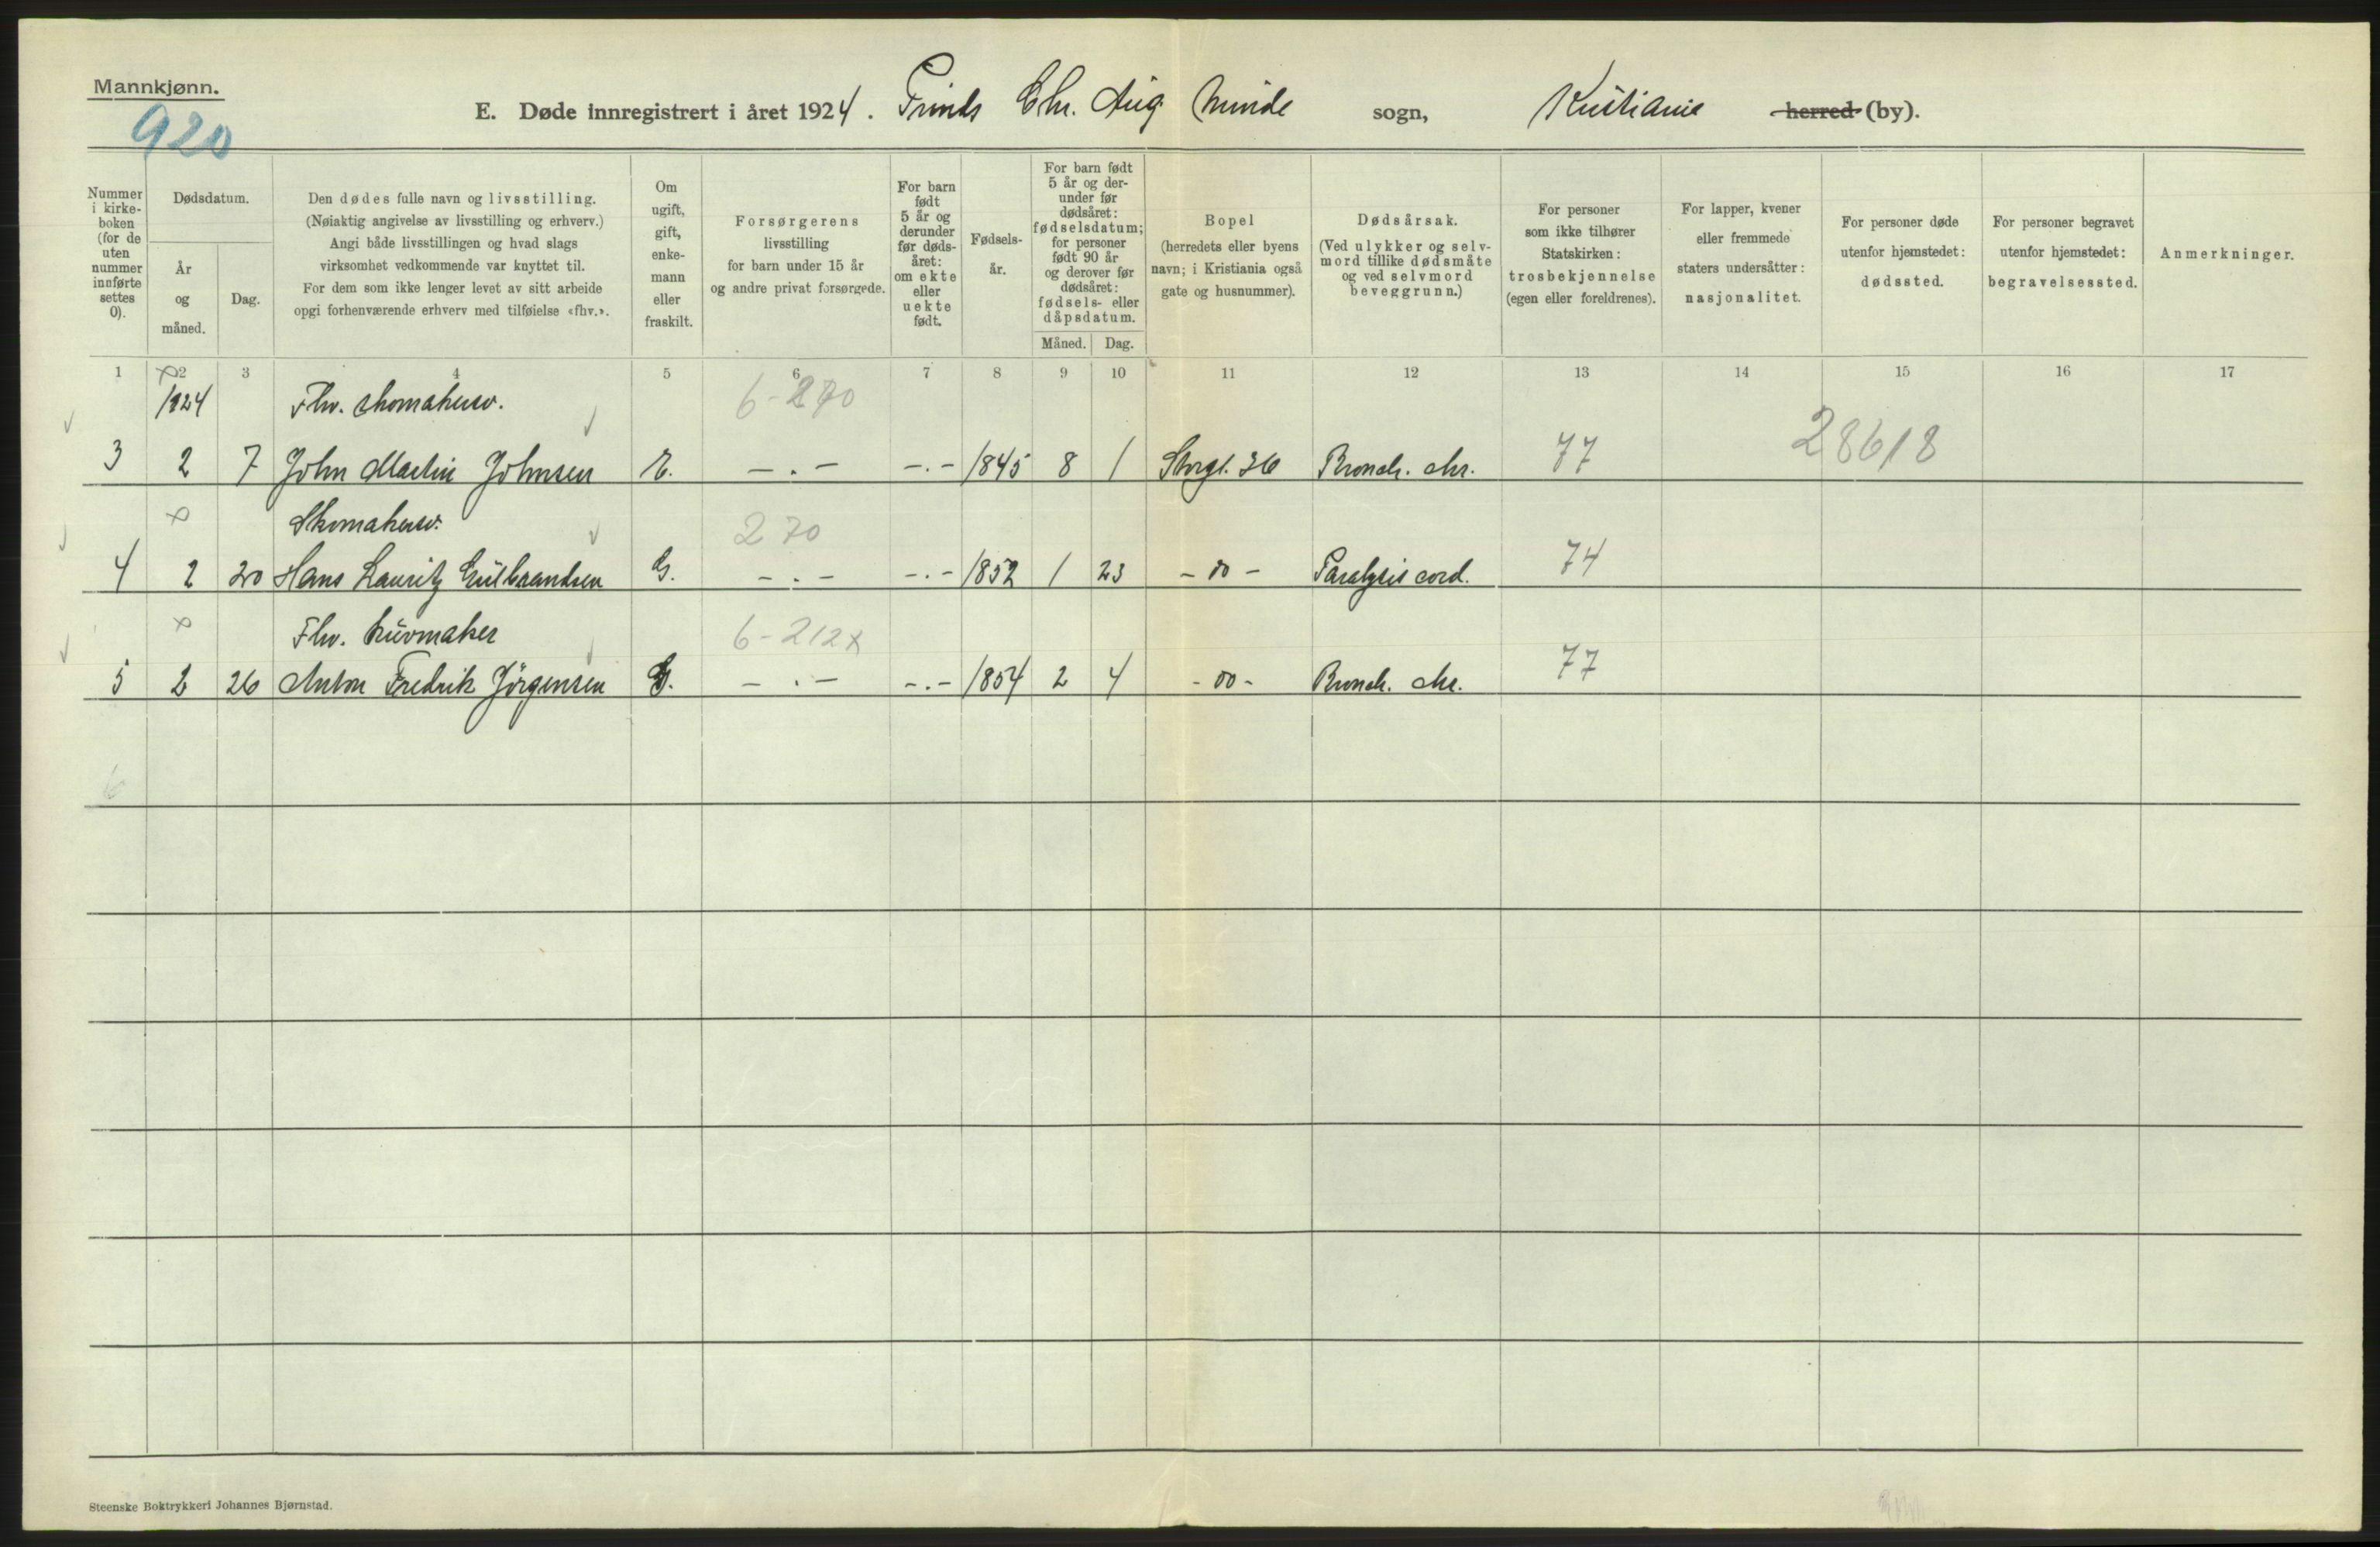 Mannkjønn.
920
E. Døde innregistrert i året 1924. Prinds Chr. Aug Minde sogn, Kristiania herred (by).
Nummer i kirke-boken (for de uten nummer innførte settes 0).
Dødsdatum.
År og måned.
Dag.
Den dødes fulle navn og livsstilling.
(Nøiaktig angivelse av livsstilling og erhverv.)
Angi både livsstillingen og hvad slags
virksomhet vedkommende var knyttet til.
For dem som ikke lenger levet av sitt arbeide
opgi forhenværende erhverv med tilføielse «fhv.».
Om ugift, gift, enke-mann eller fraskilt.
Forsørgerens
livsstilling
for barn under 15 år
og andre privat forsørgede.
For barn født 5 år og derunder før døds-året: om ekte eller uekte født.
Fødsels-år.
For barn født 5 år og der-under før dødsåret: fødselsdatum; for personer født 90 år og derover før dødsåret: fødsels- eller dåpsdatum.
Måned. Dag.
Bopel
(herredets eller byens
navn; i Kristiania også
gate og husnummer).
Dødsårsak.
(Ved ulykker og selv-
mord tillike dødsmåte
og ved selvmord
beveggrunn.)
For personer
som ikke tilhører
Statskirken:
trosbekjennelse
(egen eller foreldrenes).
For lapper, kvener
eller fremmede
staters undersåtter:
nasjonalitet.
For personer døde
utenfor hjemstedet:
dødssted.
For personer begravet
utenfor hjemstedet:
begravelsessted.
Anmerkninger.
1 2 3 4 5 6 7 8 9 10 11 12 13 14 15 16 17
1924 Fhv. skomakersv.
3 2 7 John Martin Johnsen E. - . - -.- 1845 8 1 Storgt. 36 Bronch. chr. 77 28618
Skomakersv. 270
4 2 20 Hans Lauritz Gulbrandsen G. - . - -.- 1852 1 23 - oo - Paralysis cord. 74
Fhv. buvmaker 6-212x
5 2 26 Anton Fredrik Jörgensen G. - . - -.- 1854 2 4 - oo - Bronch. chr. 77
6
Steenske Boktrykkeri Johannes Bjørnstad.